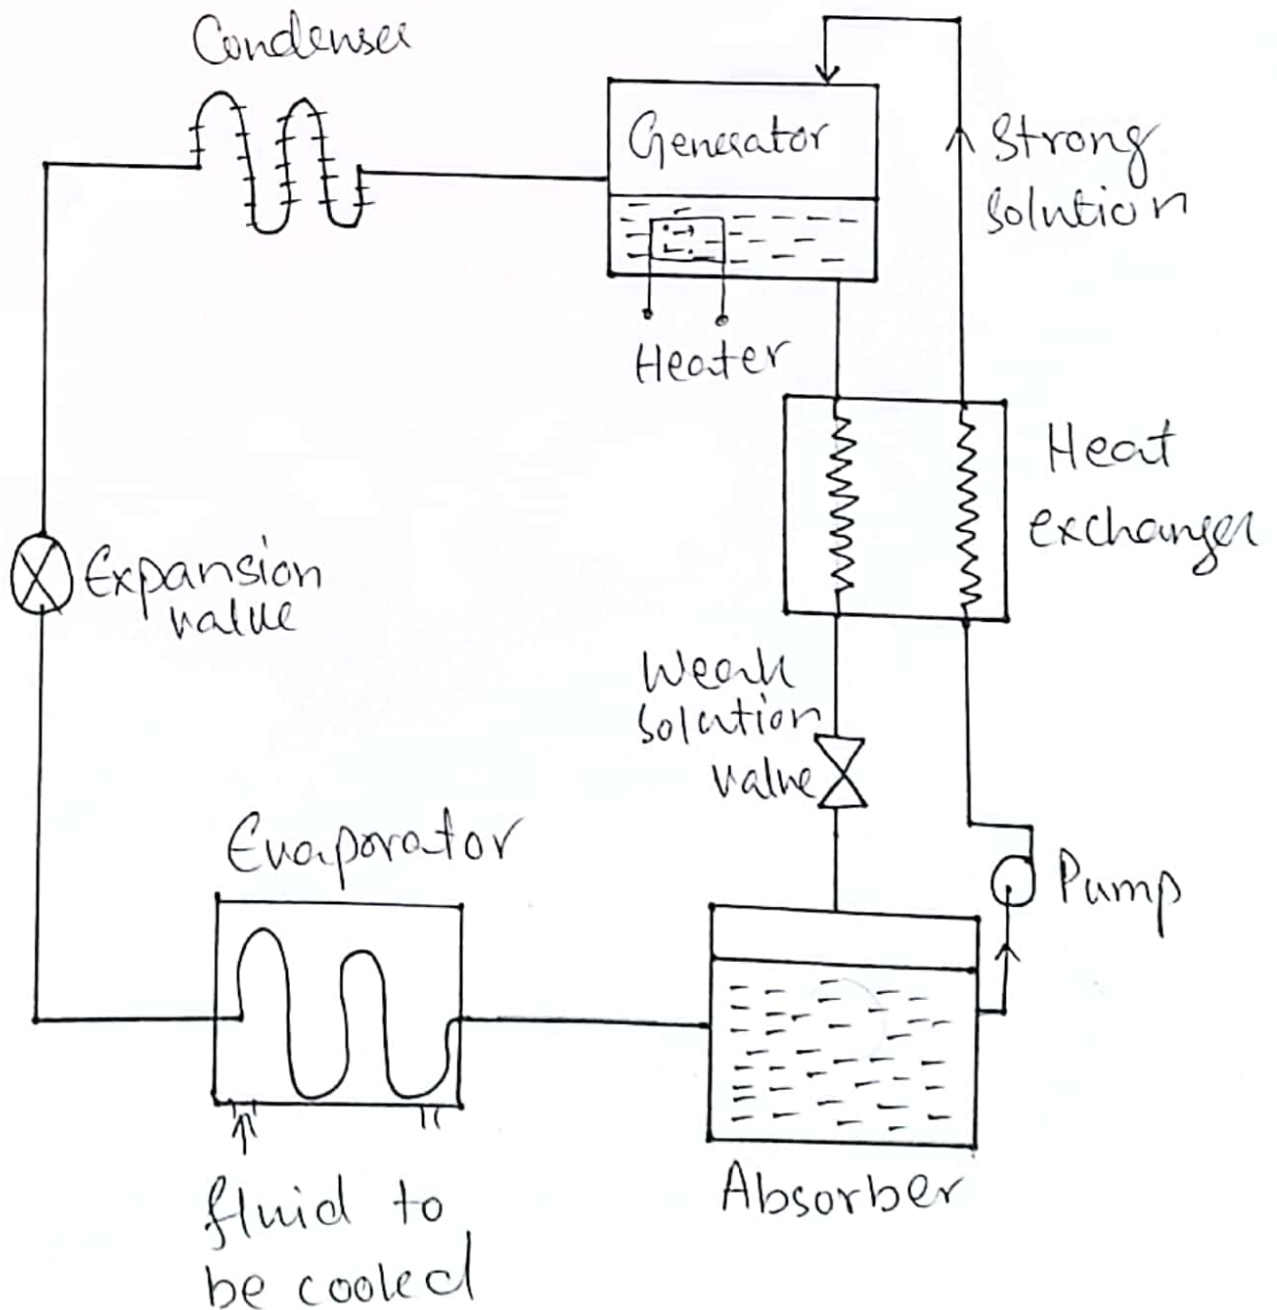 Condenser
Generator
Strong
solution
Heater
Heat
exchanger
Expansion
valve
Weak
solution
valve
Evaporator
Pump
Absorber
fluid to
be cooled